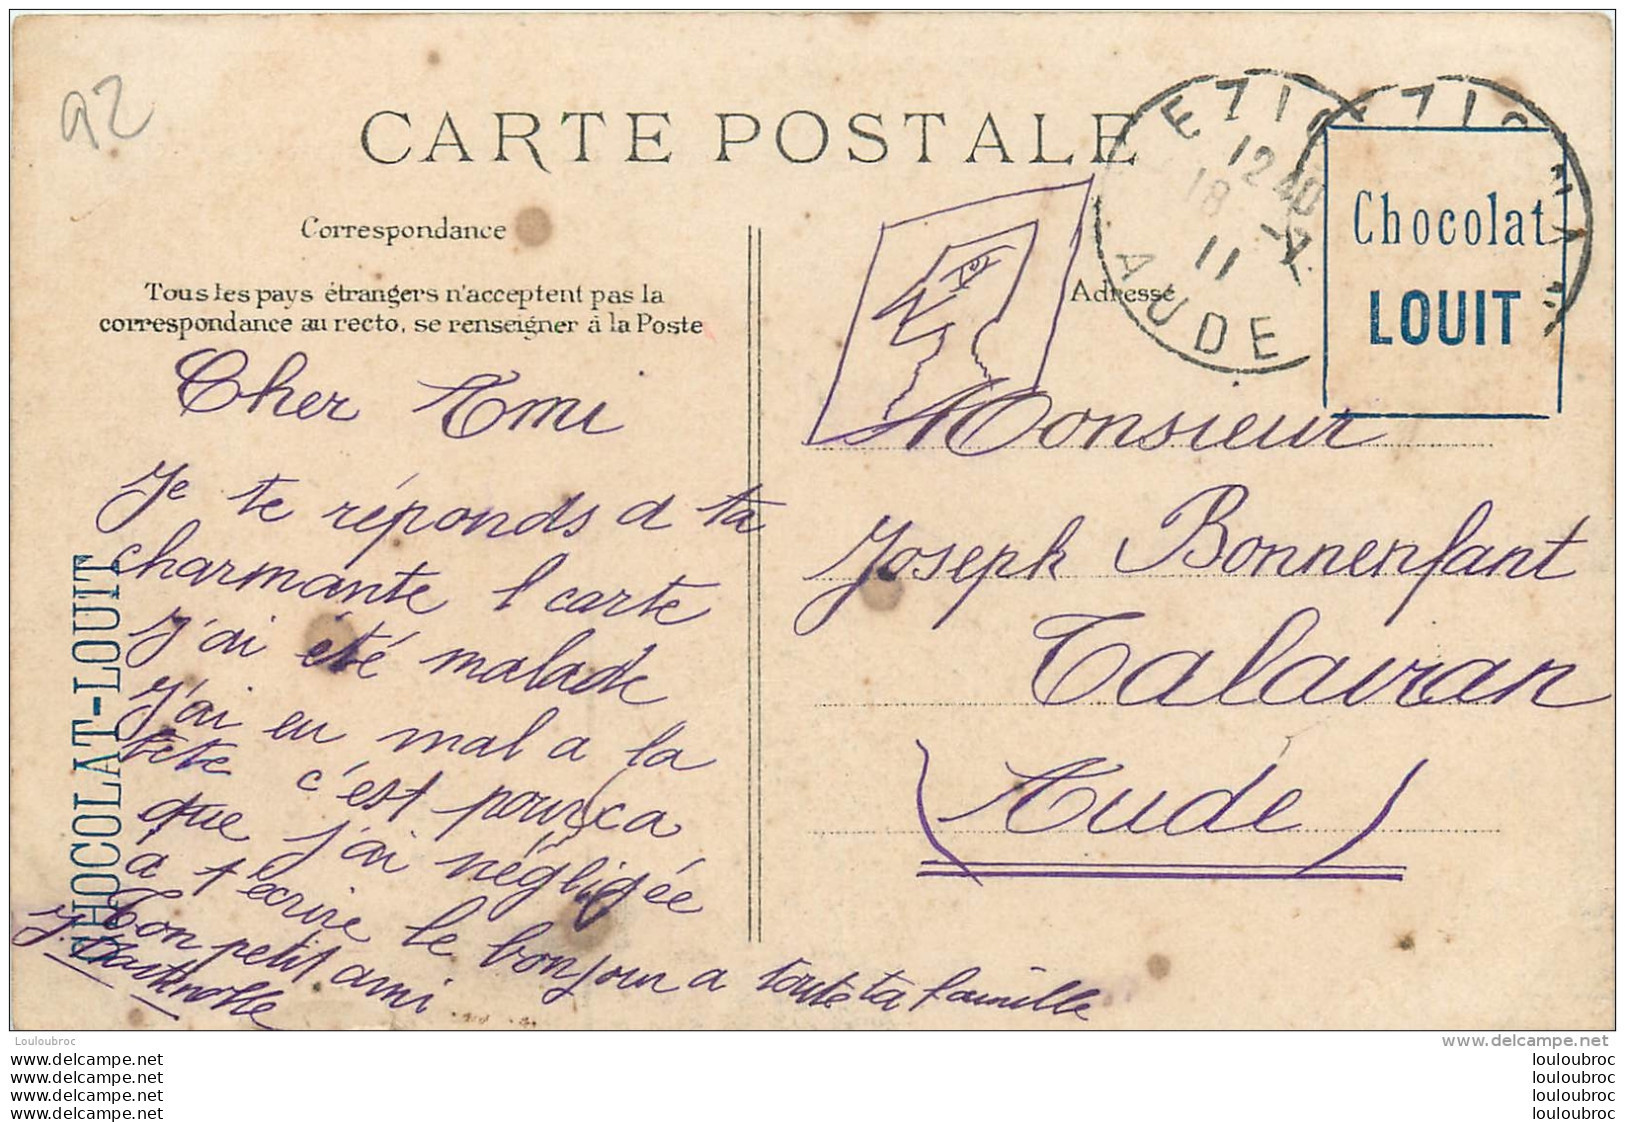 92
CARTE POSTALE
Correspondance
Tous les pays étrangers n'acceptent pas la
correspondance au recto, se renseigner à la Poste
Cher Ami
Je te réponds a ta
charmante carte
J'ai été malade
J'ai eu mal a la
tête c'est pour ca
que j'ai négligée
a t'ecrire le bonjour a toute ta famille
Ton petit ami
J.
CHOCOLAT-LOUIT
12 40
18
11
AUDE
Chocolat
LOUIT
Adresse
Monsieur
Joseph Bonnenfant
Talairan
(Aude)
Louloubroc
www.delcampe.net
www.delcampe.net
www.delcampe.net
www.delcampe.net
www.delcampe.net
louloubroc
louloubroc
louloubroc
louloubroc